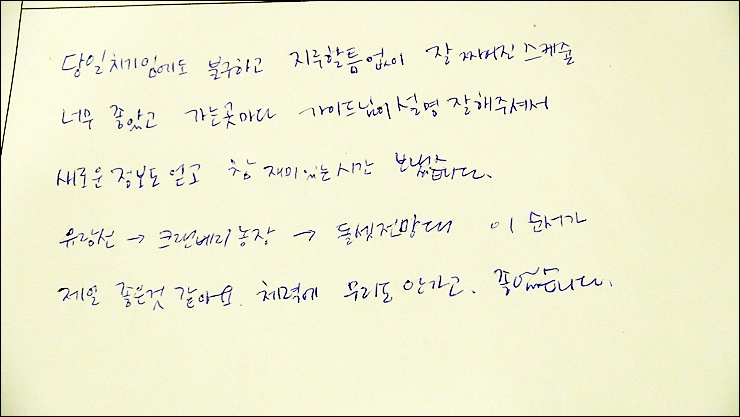 당일치기임에도 불구하고 지루할틈없이 잘 짜여진 스케줄
너무 좋았고 가는곳마다 가이드님이 설명 잘해주셔서
새로운 정보도 얻고 참 재미있는시간 보냈습니다.
유람선 → 크랜베리농장 → 돌셋전망대 이 순서가
제일 좋은것 같아요. 체력에 무리도 안가고. 좋았습니다.